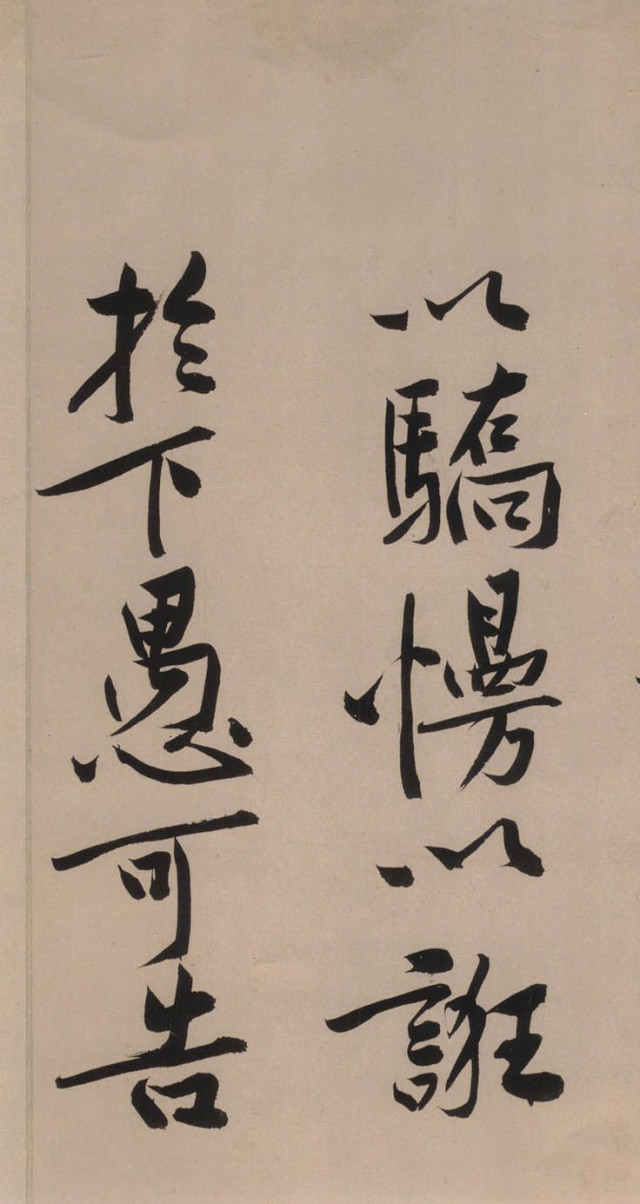 以驕慢以誑
於下愚可告